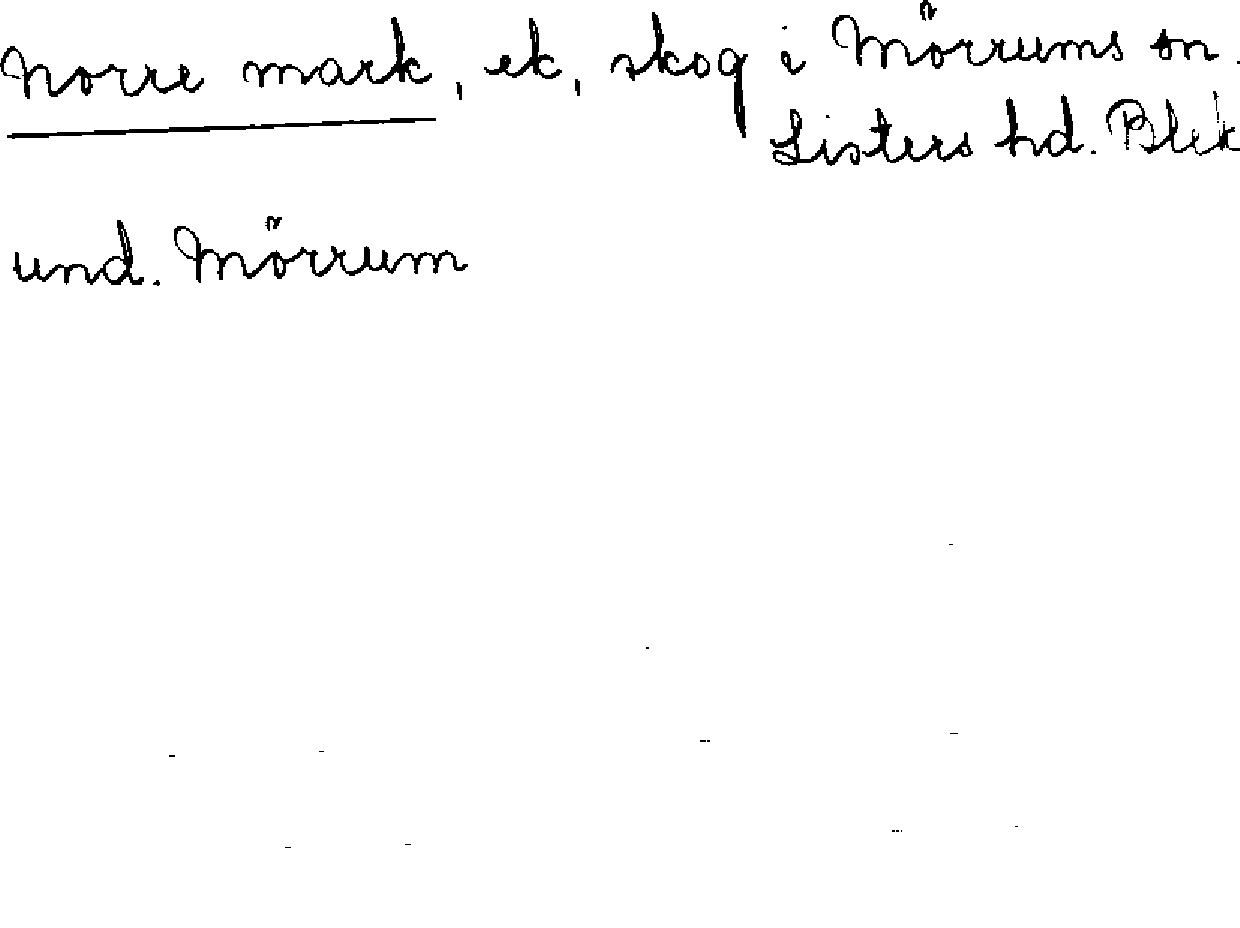 Norre mark, ek, skog i Mörrums sn.
Listers hd. Blek
und. Mörrum